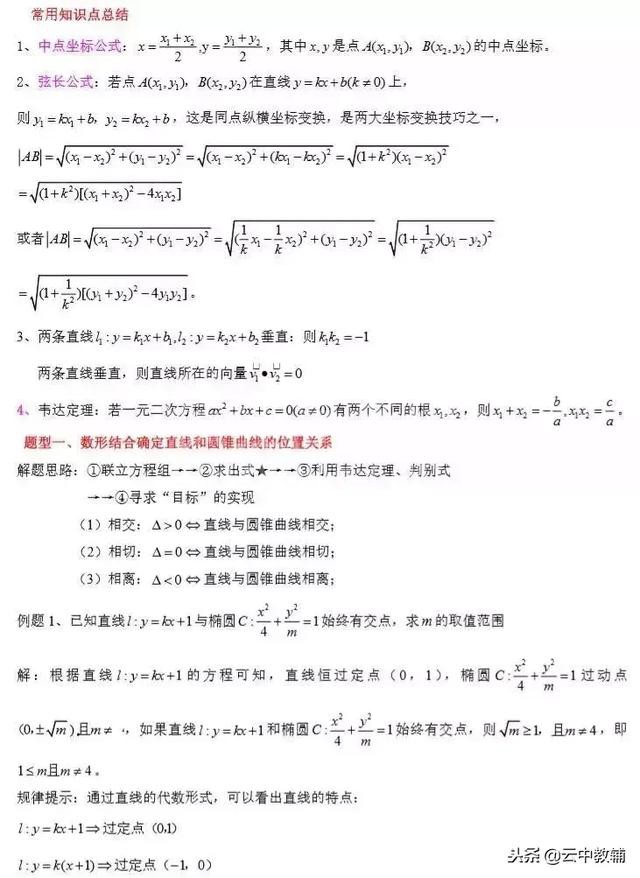 常用知识点总结
1、中点坐标公式：x = (x₁ + x₂)/2 ,y = (y₁ + y₂)/2 ，其中 x, y 是点 A(x₁, y₁)，B(x₂, y₂) 的中点坐标。
2、弦长公式：若点 A(x₁, y₁)，B(x₂, y₂) 在直线 y = kx + b(k ≠ 0) 上，
则 y₁ = kx₁ + b，y₂ = kx₂ + b，这是同点纵横坐标变换，是两大坐标变换技巧之一，
|AB| = √((x₁ − x₂)² + (y₁ − y₂)²) = √((x₁ − x₂)² + (kx₁ − kx₂)²) = √((1 + k²)(x₁ − x₂)²)
= √((1 + k²)[(x₁ + x₂)² − 4x₁x₂])
或者 |AB| = √((x₁ − x₂)² + (y₁ − y₂)²) = √((1/k x₁ − 1/k x₂)² + (y₁ − y₂)²) = √((1 + 1/k²)(y₁ − y₂)²)
= √((1 + 1/k²)[(y₁ + y₂)² − 4y₁y₂])。
3、两条直线 l₁ : y = k₁x + b₁, l₂ : y = k₂x + b₂ 垂直：则 k₁k₂ = −1
两条直线垂直，则直线所在的向量 v₁ • v₂ = 0
4、韦达定理：若一元二次方程 ax² + bx + c = 0(a ≠ 0) 有两个不同的根 x₁, x₂，则 x₁ + x₂ = −b/a, x₁x₂ = c/a。
题型一、数形结合确定直线和圆锥曲线的位置关系
解题思路：①联立方程组→→②求出式★→→③利用韦达定理、判别式
→→④寻求“目标”的实现
（1）相交：Δ > 0 ⇔ 直线与圆锥曲线相交；
（2）相切：Δ = 0 ⇔ 直线与圆锥曲线相切；
（3）相离：Δ < 0 ⇔ 直线与圆锥曲线相离；
例题 1、已知直线 l : y = kx + 1 与椭圆 C : x²/4 + y²/m = 1 始终有交点，求 m 的取值范围
解：根据直线 l : y = kx + 1 的方程可知，直线恒过定点（0，1），椭圆 C : x²/4 + y²/m = 1 过动点
(0, ±√m)，且 m ≠ ，如果直线 l : y = kx + 1 和椭圆 C : x²/4 + y²/m = 1 始终有交点，则 √m ≥ 1，且 m ≠ 4，即
1 ≤ m 且 m ≠ 4。
规律提示：通过直线的代数形式，可以看出直线的特点：
l : y = kx + 1 ⇒ 过定点（0,1）
l : y = k(x + 1) ⇒ 过定点（−1，0）
头条 @云中教辅